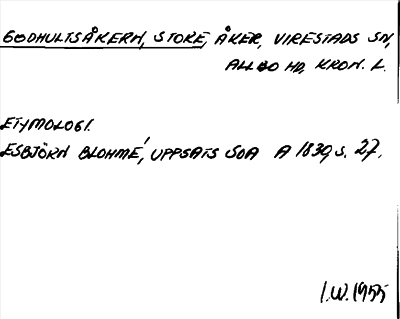 GÖDHULTSÅKERN, STORE, ÅKER, VIRESTADS SN,
ALLBO HD, KRON. L.
ETYMOLOGI.
ESBJÖRN BLOHMÉ, UPPSATS SOA A 1839 S. 27.
I.W. 1955